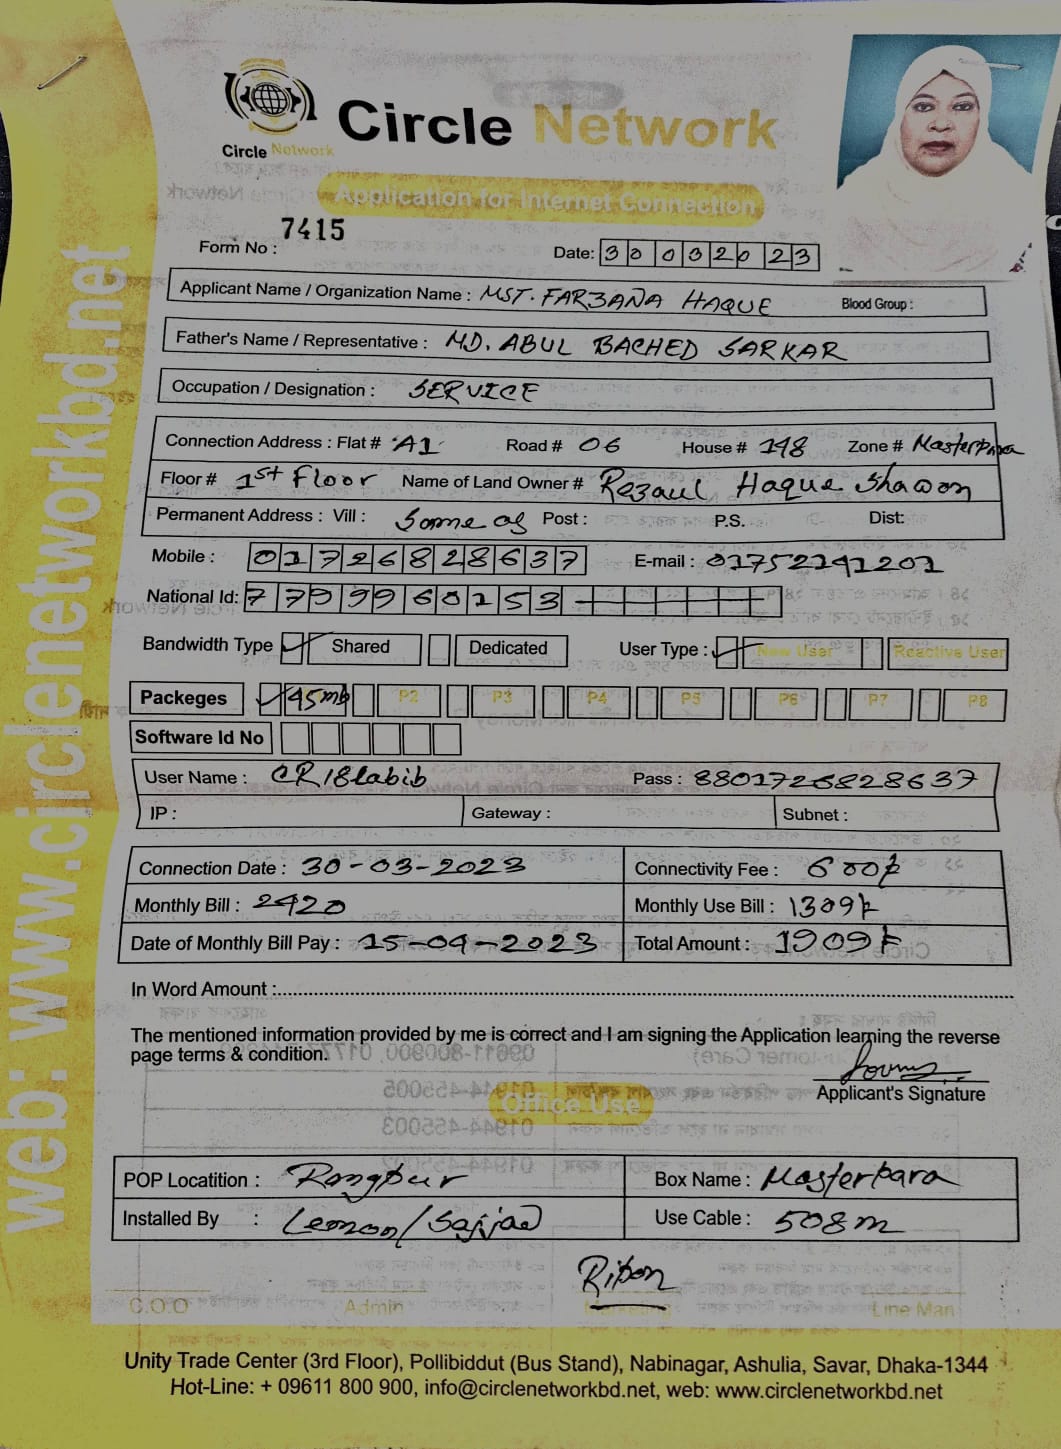 Circle Network
Circle Network
Application for Internet Connection
7415
Form No :
Date: 30032023
Applicant Name / Organization Name : MST. FARZANA HAQUE Blood Group :
Father's Name / Representative : MD. ABUL BACHED SARKAR
Occupation / Designation : SERVICE
Connection Address : Flat # A1 Road # 06 House # 148 Zone # Masterpara
Floor # 1st Floor Name of Land Owner # Rezaul Haque Shawon
Permanent Address : Vill : Same as Post : P.S. Dist:
Mobile : 01726828637 E-mail : 01752141201
National Id: 7799960153
Bandwidth Type Shared Dedicated User Type : New User Reactive User
Packeges 45mb P2 P3 P4 P5 P6 P7 P8
Software Id No
User Name : CR18labib Pass : 8801726828637
IP : Gateway : Subnet :
Connection Date : 30-03-2023 Connectivity Fee : 600
Monthly Bill : 2420 Monthly Use Bill : 1309
Date of Monthly Bill Pay : 15-04-2023 Total Amount : 1909
In Word Amount :
The mentioned information provided by me is correct and I am signing the Application learning the reverse
page terms & condition.
Applicant's Signature
Office Use
POP Locatition : Rangpur Box Name : Masterpara
Installed By : Lemon/Sajjad Use Cable : 508m
Ripon
C.O.O Admin Marketing Line Man
Unity Trade Center (3rd Floor), Pollibiddut (Bus Stand), Nabinagar, Ashulia, Savar, Dhaka-1344
Hot-Line: + 09611 800 900, info@circlenetworkbd.net, web: www.circlenetworkbd.net
web: www.circlenetworkbd.net